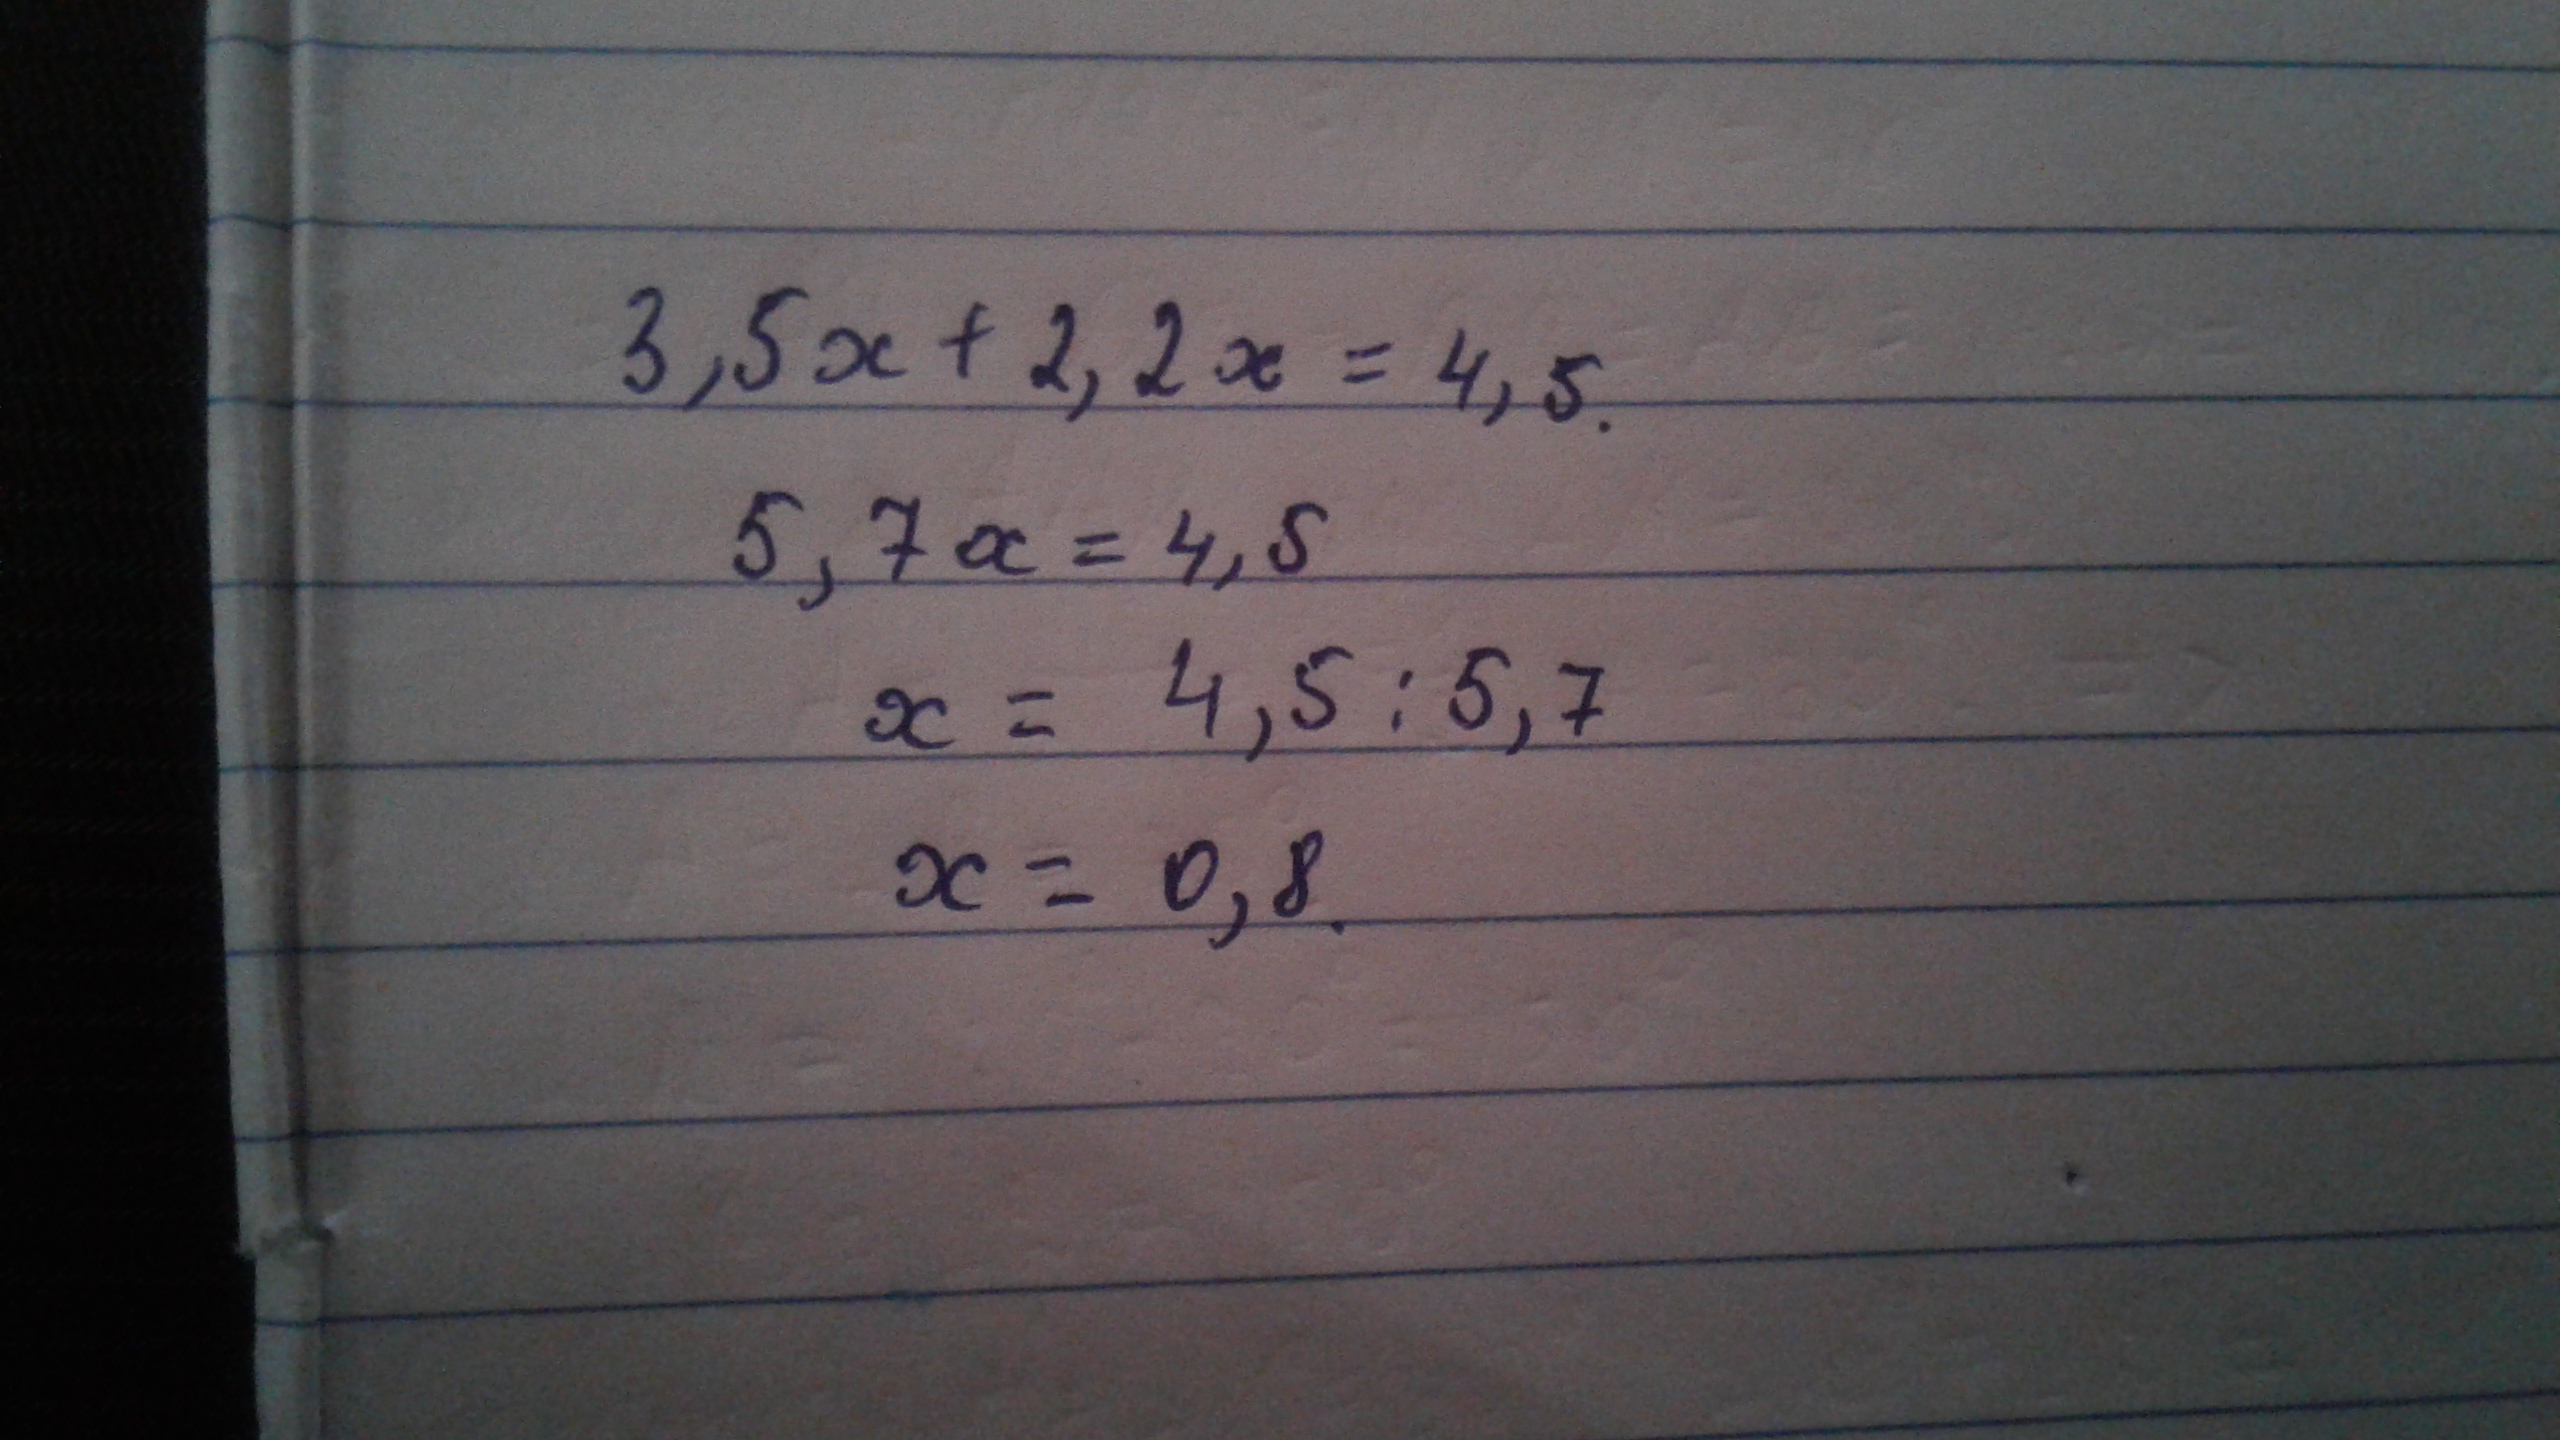 3,5x + 2,2x = 4,5.
5,7x = 4,5
x = 4,5 : 5,7
x = 0,8.